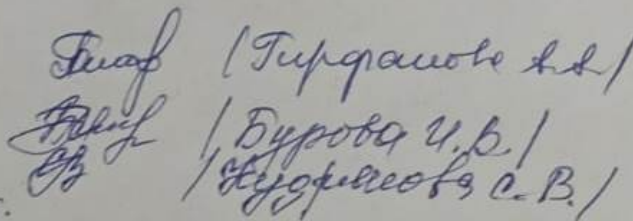 /Гирфанова А.А/
/Бурова И.В./
/Кудряшова С.В./